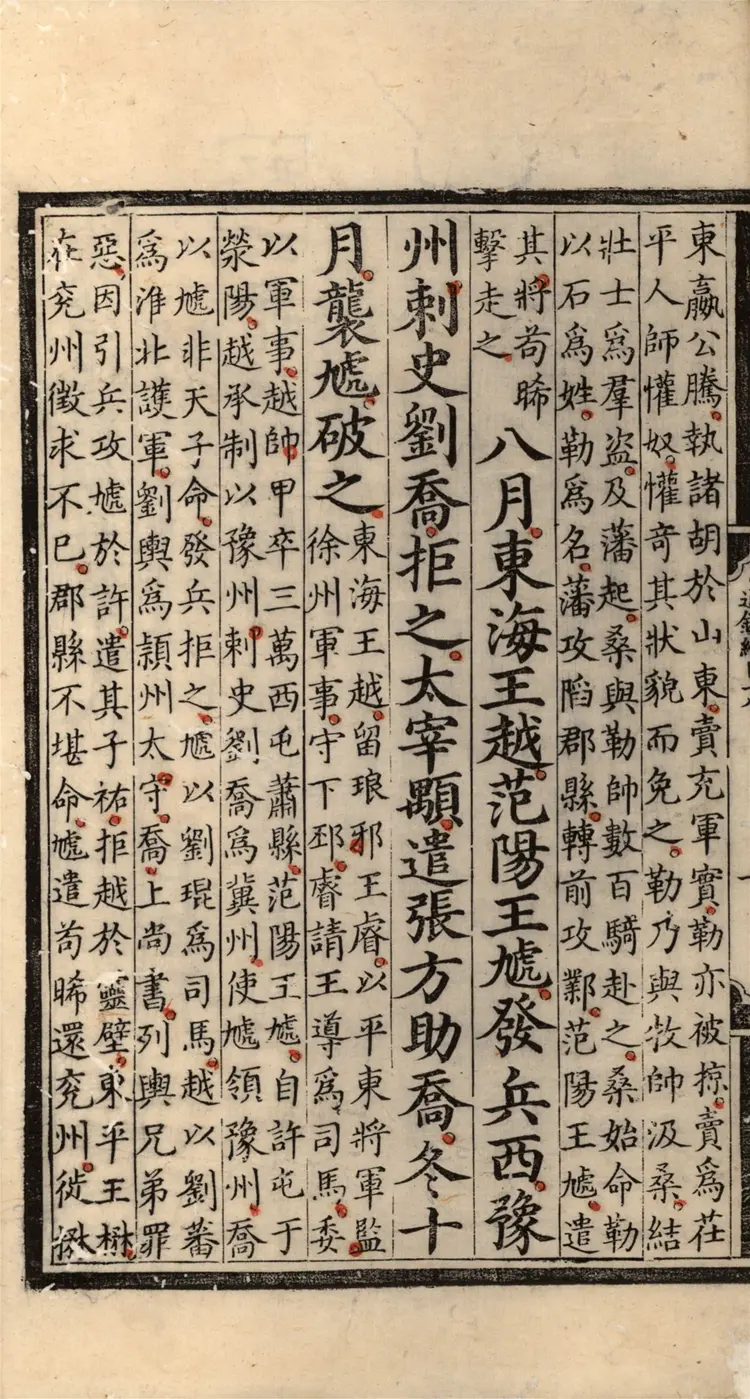 東嬴公騰執諸胡於山東賣充軍實勒亦被掠賣爲茌
平人師懽奴懽奇其狀貌而免之勒乃與牧帥汲桑結
壯士爲羣盗及藩起桑與勒帥數百騎赴之桑始命勒
以石爲姓勒爲名藩攻陷郡縣轉前攻鄴范陽王虓遣
其將茍晞
擊走之
八月東海王越范陽王虓發兵西豫
州刺史劉喬拒之太宰顒遣張方助喬冬十
月襲虓破之
東海王越留琅邪王睿以平東將軍監
徐州軍事守下邳睿請王導爲司馬委
以軍事越帥甲卒三萬西屯蕭縣范陽王虓自許屯于
滎陽越承制以豫州刺史劉喬爲冀州使虓領豫州喬
以虓非天子命發兵拒之虓以劉琨爲司馬越以劉蕃
爲淮北護軍劉輿爲頴州太守喬上尚書列輿兄弟罪
惡因引兵攻虓於許遣其子祐拒越於靈壁東平王楙
在兖州徵求不已郡縣不堪命虓遣茍晞還兖州徙楙